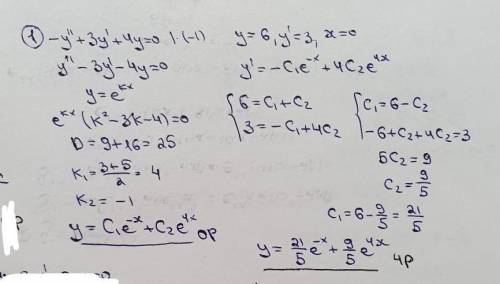 ① -y''+3y'+4y=0 |·(-1)
y''-3y'-4y=0
y=e^{kx}
e^{kx}(k²-3k-4)=0
D=9+16=25
k₁=\frac{3+5}{2}=4
k₂=-1
y=C₁e^{-x}+C₂e^{4x} ОР
y=6, y'=3, x=0
y'=-C₁e^{-x}+4C₂e^{4x}
{6=C₁+C₂
3=-C₁+4C₂
{C₁=6-C₂
-6+C₂+4C₂=3
5C₂=9
C₂=\frac{9}{5}
C₁=6-\frac{9}{5}=\frac{21}{5}
y=\frac{21}{5}e^{-x}+\frac{9}{5}e^{4x} ЧР